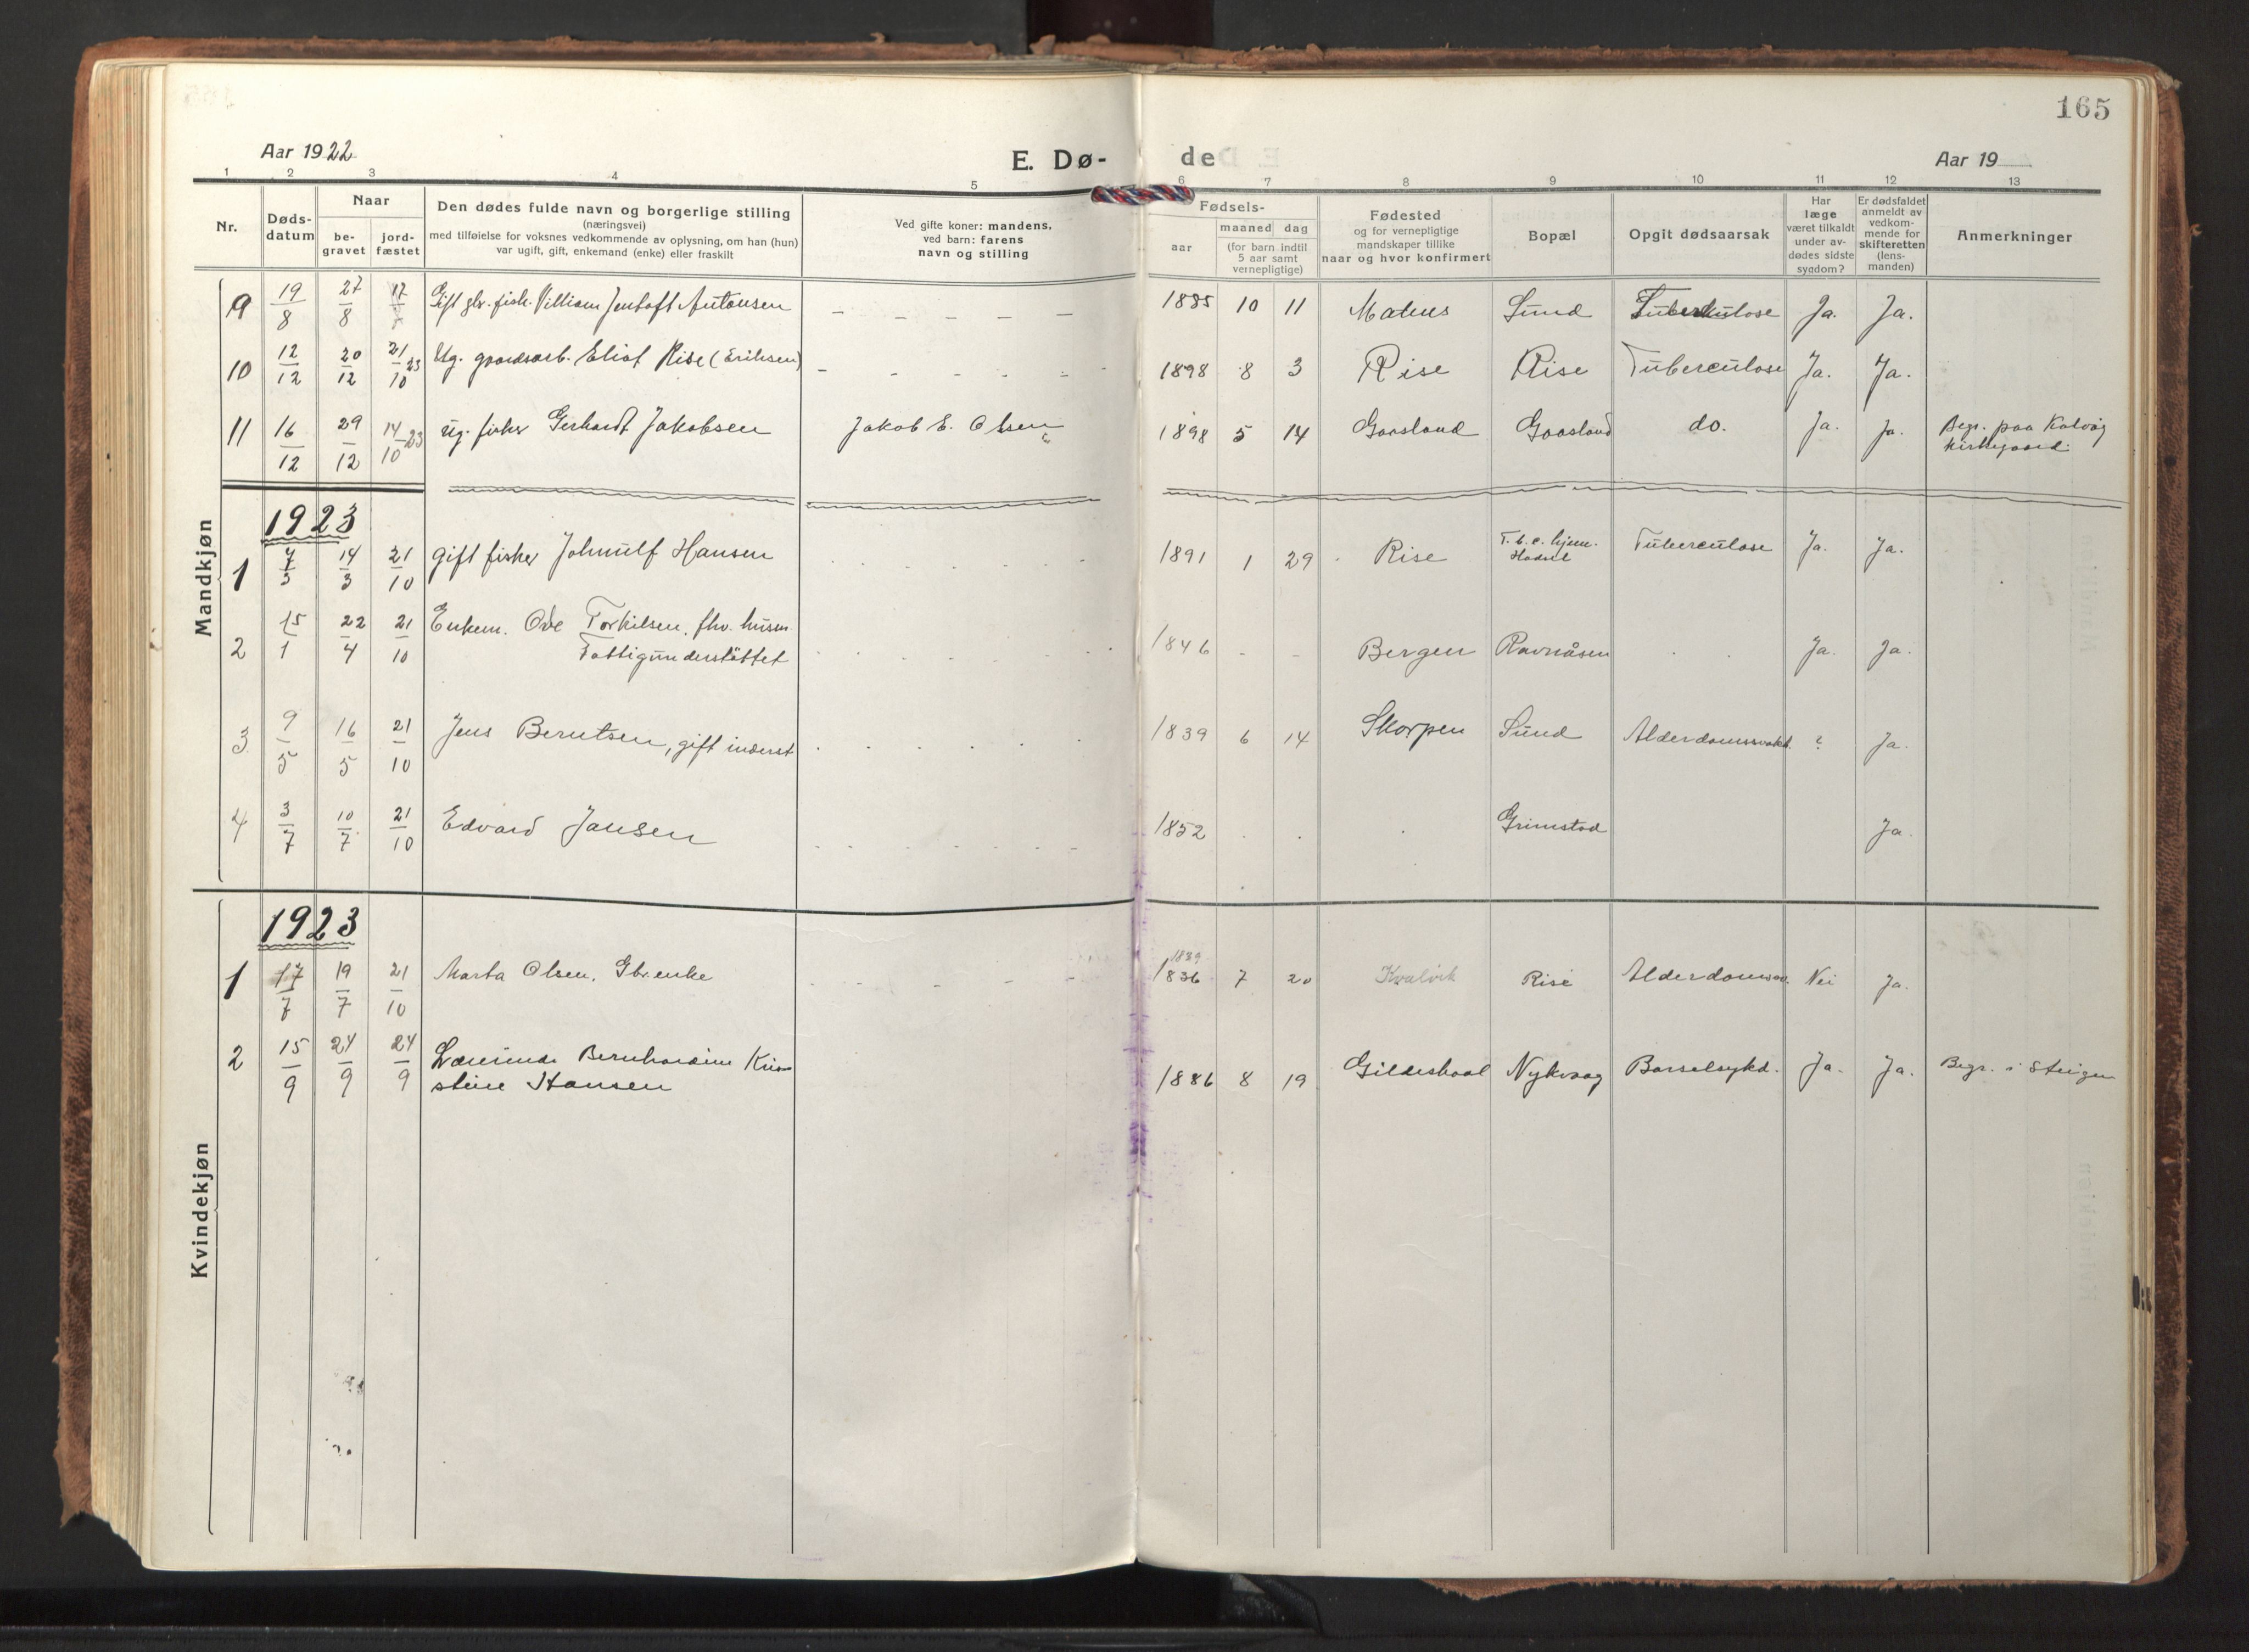 165
Aar 1922
E. Dø-
de
Aar 19
1 2 3 4 5 6 7 8 9 10 11 12 13
Nr.
Døds-
datum
Naar
be-
gravet
jord-
fæstet
Den dødes fulde navn og borgerlige stilling
(næringsvei)
med tilføielse for voksnes vedkommende av oplysning, om han (hun)
var ugift, gift, enkemand (enke) eller fraskilt
Ved gifte koner: mandens,
ved barn: farens
navn og stilling
Fødsels-
aar
maaned dag
(for barn indtil
5 aar samt
vernepligtige)
Fødested
og for vernepligtige
mandskaper tillike
naar og hvor konfirmert
Bopæl
Opgit dødsaarsak
Har
læge
været tilkaldt
under av-
dødes sidste
sygdom?
Er dødsfaldet
anmeldt av
vedkom-
mende for
skifteretten
(lens-
manden)
Anmerkninger
Mandkjøn
9 19/8 27/8 Gift gbr. fisk. Villiam Jentoft Antonsen - - - - - 1885 10 11 Sund Tuberkulose Ja. Ja.
10 12/12 20/12 21/10 23 Ug. gaardsarb. Eliot Rise (Eriksen) - - - - - 1898 8 3 Rise Rise Tuberculose Ja. Ja.
11 16/12 29/12 14/10 23 ug. fisker Gerhardt Jakobsen Jakob E. Olsen 1898 5 14 Gaasland Gaasland do. Ja. Ja. Begr. paa Kalvåg
kirkegaard.
1923
1 7/3 14/3 21/10 gift fisker Johnulf Hansen 1891 1 29 Rise T.b.c. hjem.
Hadsel Tuberculose Ja. Ja.
2 15/1 22/4 21/10 Enkem. Ove Torkilsen, fhv. husm.
Fattigunderstöttet 1846 - - Bergen Ravnåsen Ja. Ja.
3 9/5 16/5 21/10 Jens Berntsen, gift inderst 1839 6 14 Skorpen Sund Alderdomssvakh. ? Ja.
4 3/7 10/7 21/10 Edvard Jansen 1852 Grimstad Ja.
Kvindekjøn
1923
1 17/7 19/7 21/10 Marta Olsen, Gbr.enke 1839
1836 7 20 Kvalvik Rise Alderdomssv. Nei Ja.
2 15/9 24/9 24/9 Bernhardine Kri-
stine Hansen 1886 8 19 Gildeskaal Nykvaag Barselsykd. Ja. Ja. Begr. i Steigen